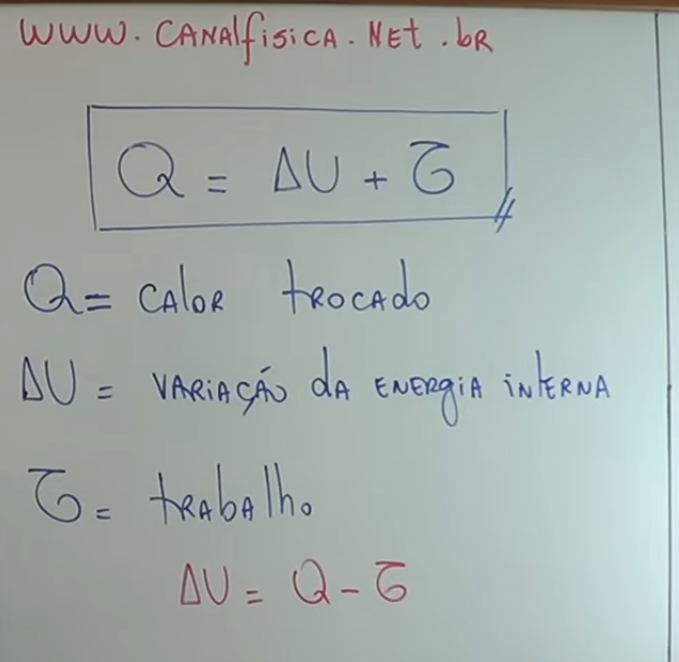 www.CANAlfisicA.NEt.bR
Q = ΔU + τ
Q = CAloR tROCAdo
ΔU = VARiAÇÃO dA ENERgiA iNtERNA
τ = tRAbAlho
ΔU = Q - τ